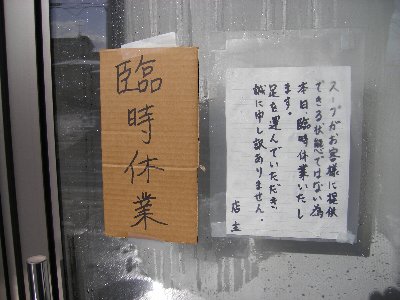 臨時休業
スープがお客様に提供
できる状態ではない為
本日、臨時休業いたし
ます。
足を運んでいただき、
誠に申し訳ありません。
店主